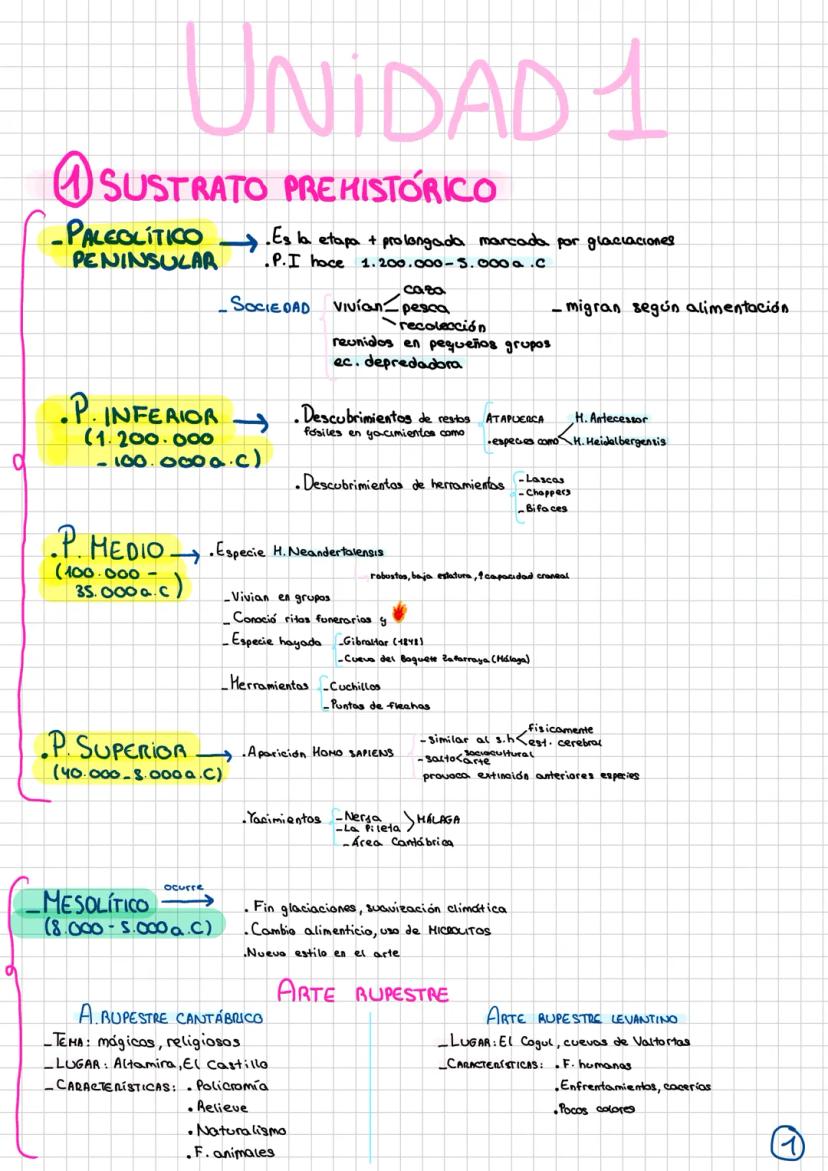 UNIDAD 1
① SUSTRATO PREHISTÓRICO
- PALEOLÍTICO PENINSULAR → . Es la etapa + prolongada marcada por glaciaciones
. P.I hace 1.200.000-5.000 a.C
- SOCIEDAD
vivían
caza
pesca
recolección
reunidos en pequeños grupos
ec. depredadora
- migran según alimentación
. P. INFERIOR →
(1.200.000
- 100.000 a.C)
. Descubrimientos de restos
fósiles en yacimientos como
ATAPUERCA
. especies como
H. Antecessor
H. Heidelbergensis
. Descubrimientos de herramientas
- Lascas
- Choppers
- Bifaces
. P. MEDIO →
(100.000 -
35.000 a.C)
. Especie H. Neandertalensis
robustos, baja estatura, ↑ capacidad craneal
- Vivian en grupos
- Conoció ritos funerarios y 🔥
- Especie hayada
- Gibraltar (1848)
- Cueva del Boquete Zafarraya (Málaga)
- Herramientas
- Cuchillos
- Puntas de flechas
. P. SUPERIOR →
(40.000-8.000 a.C)
. Aparición HOMO SAPIENS
- similar al s.h
físicamente
est. cerebral
- salto
sociocultural
arte
provoca extinción anteriores especies
. Yacimientos
- Nerja
- La Pileta
MÁLAGA
- Área Cantábrica
- MESOLÍTICO
ocurre →
(8.000 - 5.000 a.C)
. Fin glaciaciones, suavización climática
. Cambio alimenticio, uso de MICROLITOS
. Nuevo estilo en el arte
ARTE RUPESTRE
A. RUPESTRE CANTÁBRICO
- TEMA: mágicos, religiosos
- LUGAR: Altamira, El Castillo
- CARACTERÍSTICAS: . Policromía
. Relieve
. Naturalismo
. F. animales
ARTE RUPESTRE LEVANTINO
- LUGAR: El Cogul, cuevas de Valtortas
- CARACTERÍSTICAS: . F. humanas
. Enfrentamientos, cacerías
. Pocos colores
1